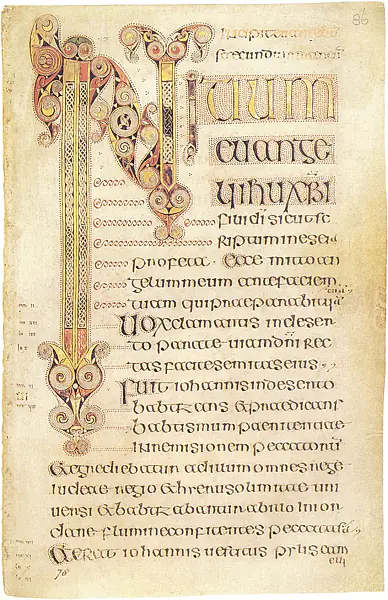 86
INITIUM
euange
lii ihu xpi
fili di sicut sc
riptum in esaia
profeta. Ecce mitto an
gelum meum ante faciem
tuam qui praeparabit uiam
Uox clamantis in deser
to parate uiam dni rec
tas facite semitas eius
Fuit iohannis in deserto
babtizans et praedicans
babtismum paenitentiae
in remisionem peccatorum
Et egrediebatur ad illum omnes
iudeae regio et hierusolimitae uni
uersi et babtizabantur ab illo in ior
dane flumine confitentes peccata sua
Et erat iohannis uestitus pylis cam
elli
78